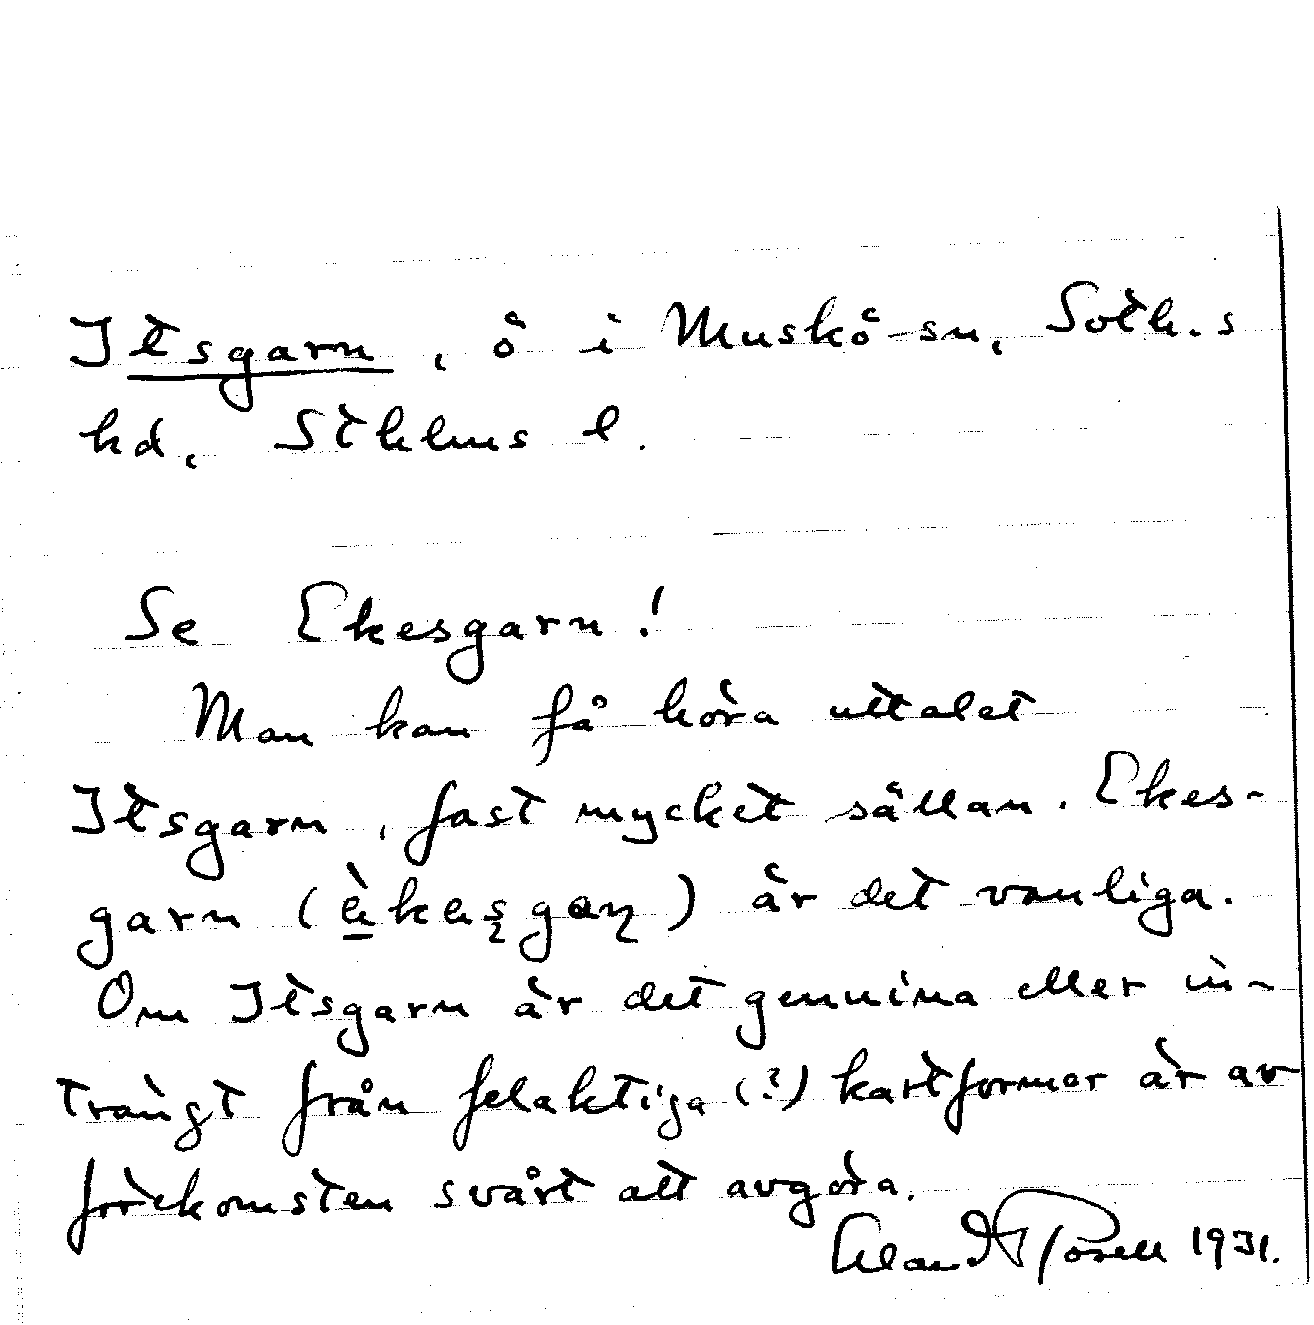 Itsgarn, ö i Muskö sn, Soth.s
hd, Sthlms l.
Se Ekesgarn!
Man kan få höra uttalet
Itsgarn, fast mycket sällan. Ekes-
garn ( ) är det vanliga.
Om Itsgarn är det genuina eller in-
trängt från felaktiga (?) kartformer är av
förekomsten svårt att avgöra.
1931.